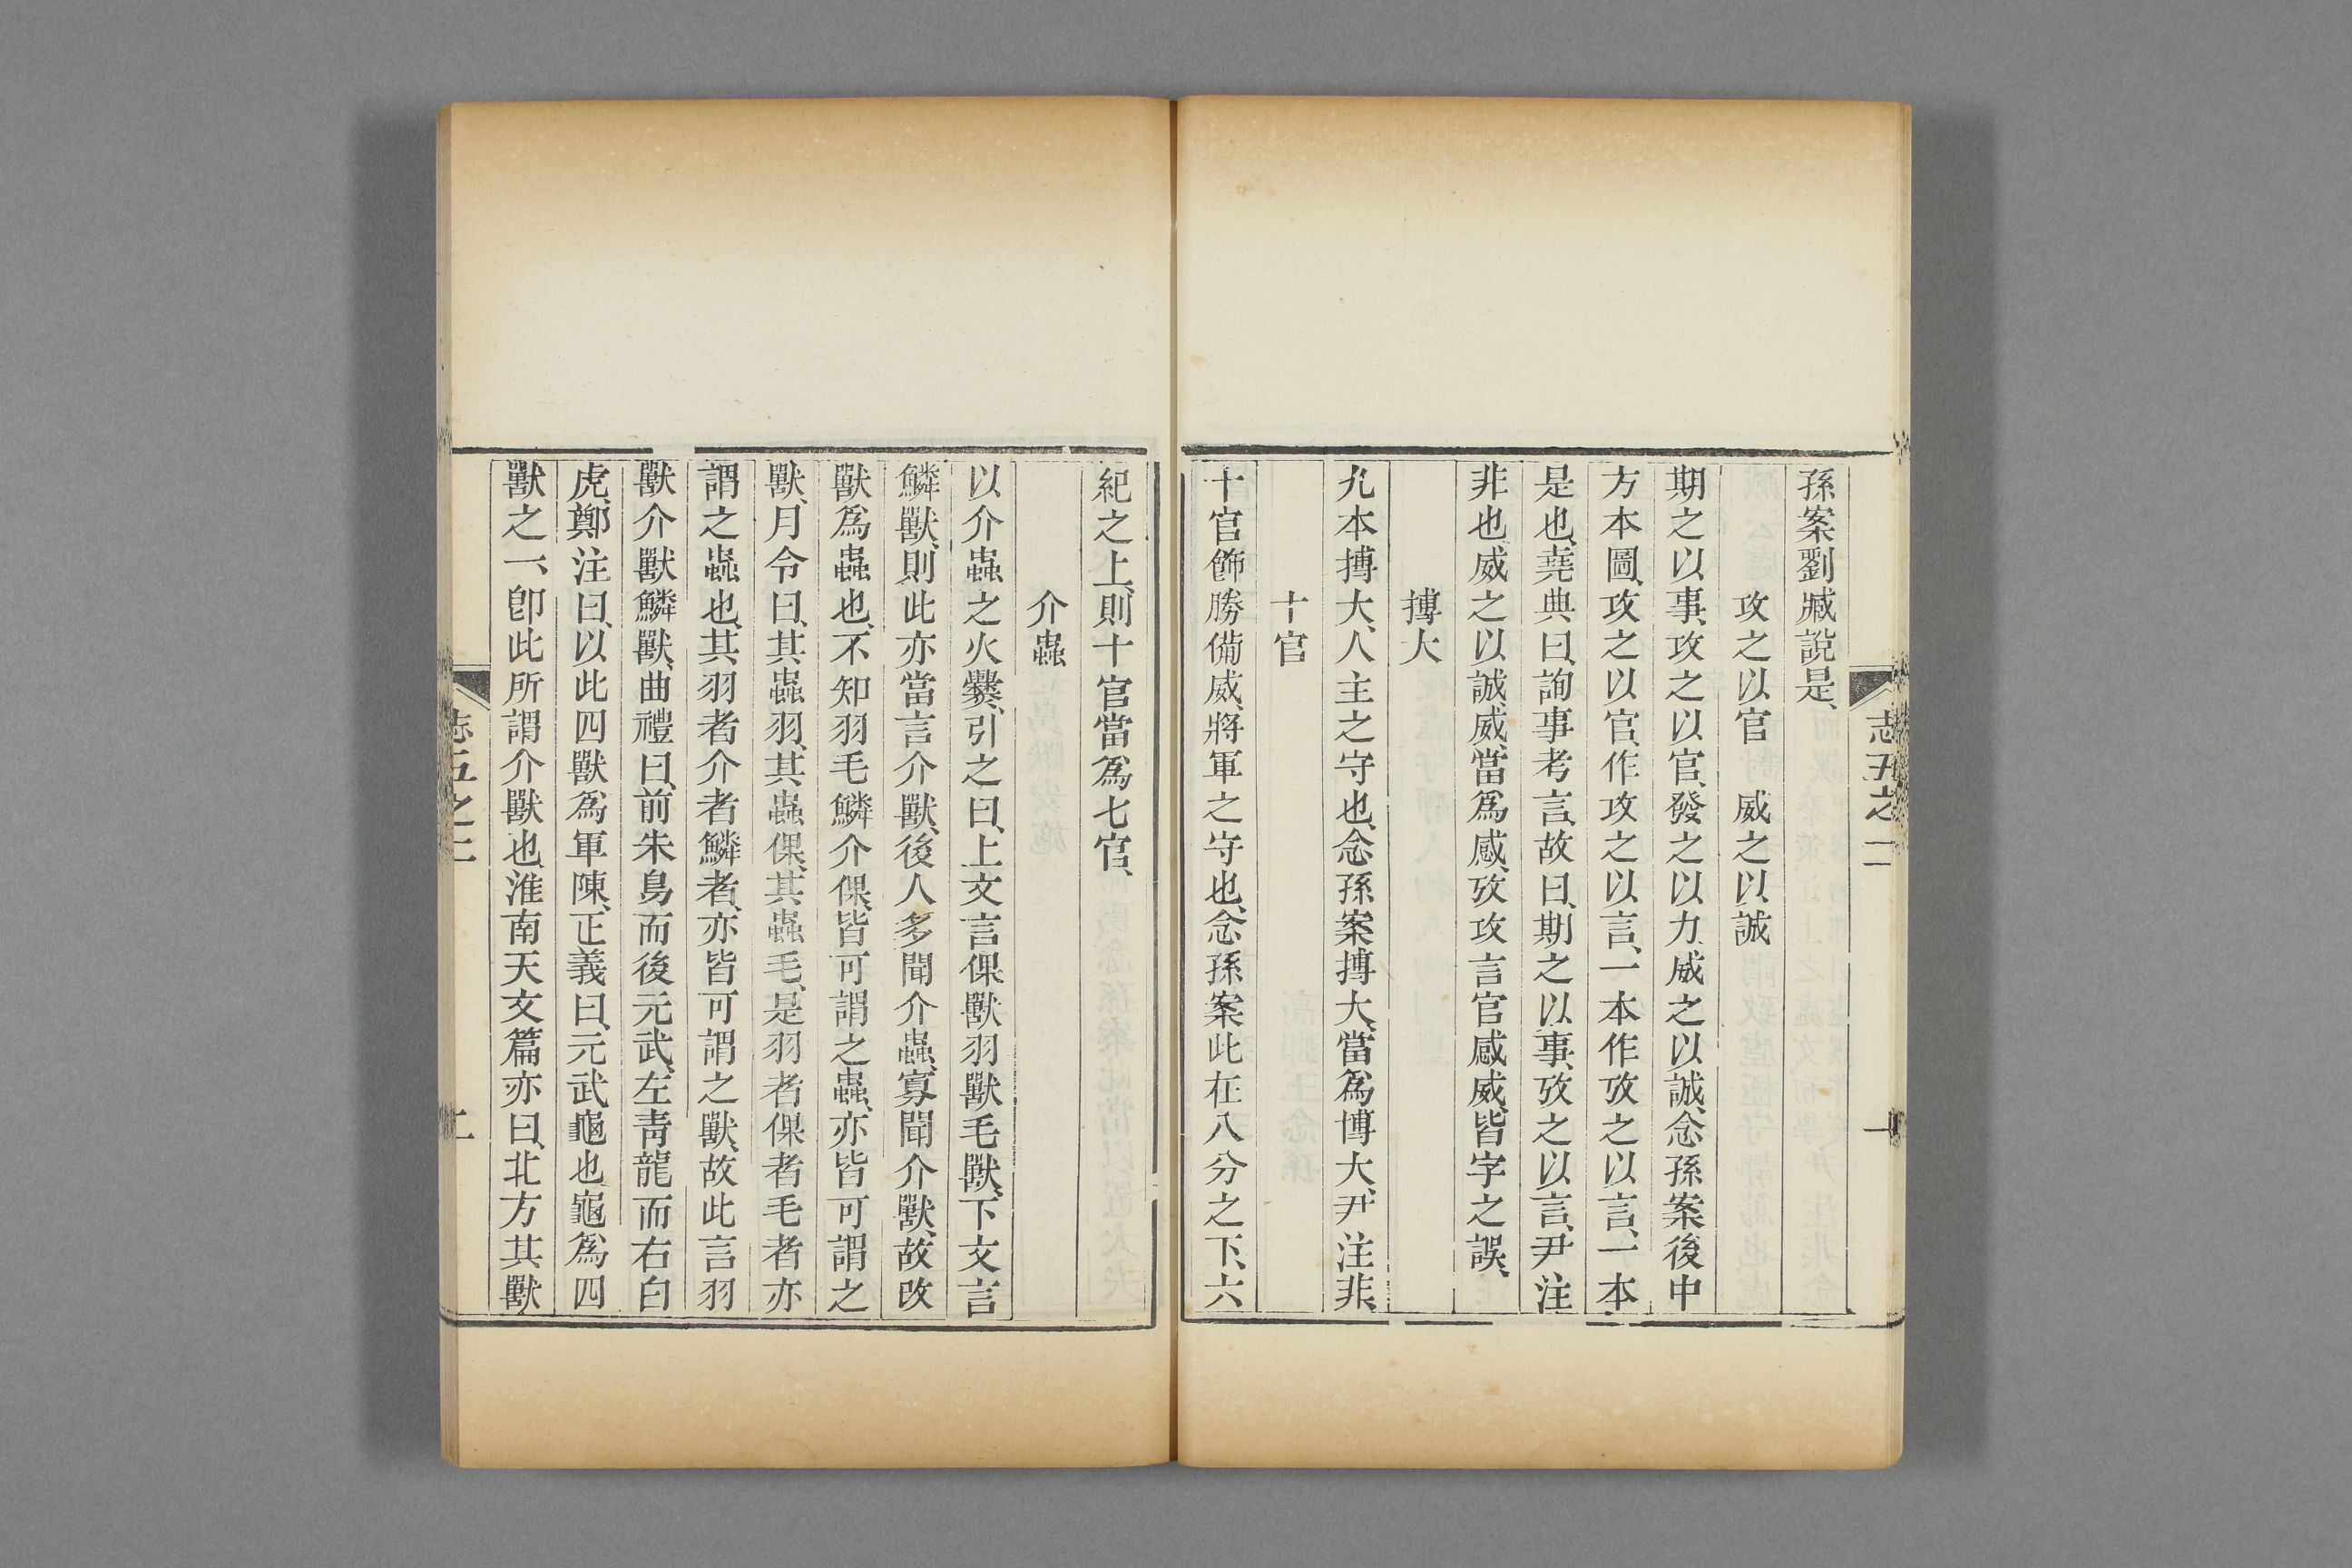 志五之二
一
孫案劉臧說是、
攻之以官　威之以誠
期之以事、攻之以官、發之以力、威之以誠、念孫案後中
方本圖、攻之以官、作攻之以言、一本作攷之以言、一本
是也、堯典曰、詢事考言、故曰、期之以事、攷之以言、尹注
非也、威之以誠、威、當爲感、攷攻言官感威、皆字之誤、
摶大
九本摶大、人主之守也、念孫案摶大、當爲博大、尹注非、
十官
十官飾勝備威、將軍之守也、念孫案此在八分之下、六
紀之上、則十官當爲七官、
介蟲
以介蟲之火爨、引之曰、上文言倮獸羽獸毛獸、下文言
鱗獸、則此亦當言介獸、後人多聞介蟲、寡聞介獸、故改
獸爲蟲也、不知羽毛鱗介倮、皆可謂之蟲、亦皆可謂之
獸、月令曰、其蟲羽、其蟲倮、其蟲毛、是羽者倮者毛者亦
謂之蟲也、其羽者介者鱗者、亦皆可謂之獸、故此言羽
獸介獸鱗獸、曲禮曰、前朱鳥而後元武、左靑龍而右白
虎、鄭注曰、以此四獸爲軍陳、正義曰、元武龜也、龜爲四
獸之一、卽此所謂介獸也、淮南天文篇亦曰、北方其獸
志五之二
二